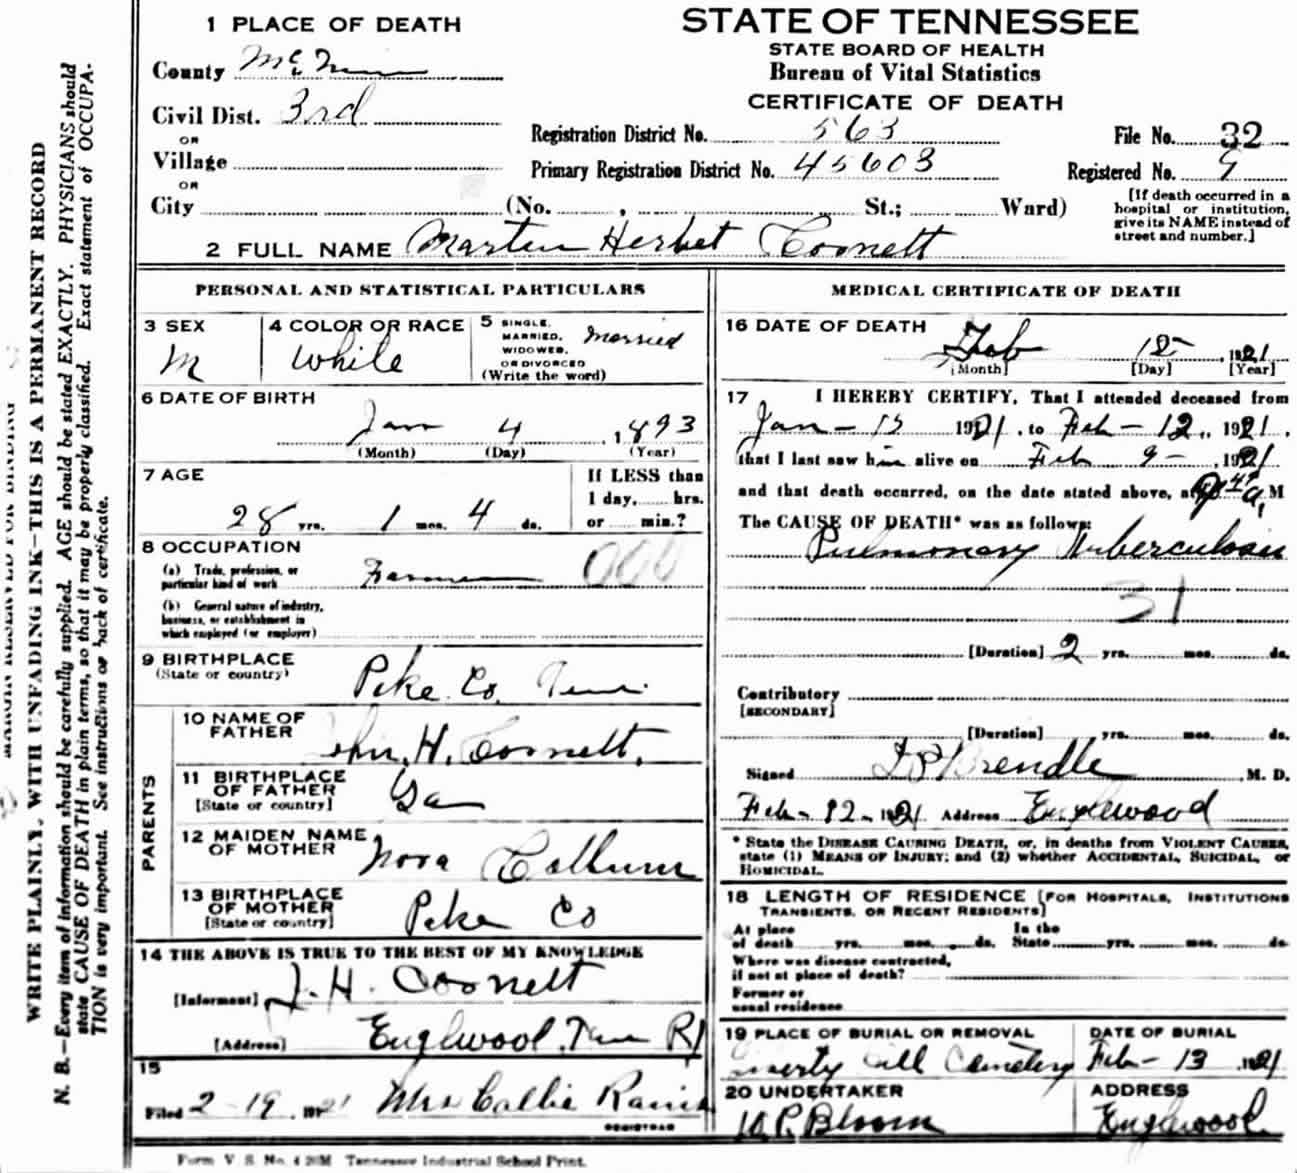 1 PLACE OF DEATH
County McMinn
Civil Dist. 3rd
OR
Village
OR
City (No. , St.; Ward)
STATE OF TENNESSEE
STATE BOARD OF HEALTH
Bureau of Vital Statistics
CERTIFICATE OF DEATH
Registration District No. 563
File No. 32
Primary Registration District No. 45603
Registered No. 9
[If death occurred in a
hospital or institution,
give its NAME instead of
street and number.]
2 FULL NAME Marten Herbet Cornett
PERSONAL AND STATISTICAL PARTICULARS
3 SEX
M
4 COLOR OR RACE
White
5 SINGLE,
MARRIED,
WIDOWED,
OR DIVORCED
(Write the word)
Married
6 DATE OF BIRTH
Jan 4, 1893
(Month) (Day) (Year)
7 AGE
28 yrs. 1 mos. 4 ds.
If LESS than
1 day, hrs.
or min.?
8 OCCUPATION
(a) Trade, profession, or
particular kind of work Farmer
000
(b) General nature of industry,
business, or establishment in
which employed (or employer)
9 BIRTHPLACE
(State or country)
Peke Co. Tenn.
PARENTS
10 NAME OF
FATHER
John. H. Cornett.
11 BIRTHPLACE
OF FATHER
[State or country]
Ga
12 MAIDEN NAME
OF MOTHER
Nora
13 BIRTHPLACE
OF MOTHER
[State or country]
Peke Co
14 THE ABOVE IS TRUE TO THE BEST OF MY KNOWLEDGE
[Informant] J. H. Cornett
[Address] Englewood, Tenn R1
15
Filed 2-19, 1921 Mrs Callie Rains
REGISTRAR
MEDICAL CERTIFICATE OF DEATH
16 DATE OF DEATH
Feb 12, 1921
[Month] [Day] [Year]
17 I HEREBY CERTIFY, That I attended deceased from
Jan - 15 1921, to Feb - 12, 1921,
that I last saw him alive on Feb 9 -, 1921
and that death occurred, on the date stated above, at M
The CAUSE OF DEATH* was as follows:
Pulmonary Tuberculosis
31
[Duration] 2 yrs. mos. ds.
Contributory
[SECONDARY]
[Duration] yrs. mos. ds.
Signed Brendle, M. D.
Feb - 12 - 1921 Address Englewood
* State the DISEASE CAUSING DEATH, or, in deaths from VIOLENT CAUSES,
state (1) MEANS OF INJURY; and (2) whether ACCIDENTAL, SUICIDAL, or
HOMICIDAL.
18 LENGTH OF RESIDENCE [FOR HOSPITALS, INSTITUTIONS
TRANSIENTS, OR RECENT RESIDENTS]
At place
of death yrs. mos. ds.
In the
State yrs. mos. ds.
Where was disease contracted,
if not at place of death?
Former or
usual residence
19 PLACE OF BURIAL OR REMOVAL
Liberty Hill Cemetery
DATE OF BURIAL
Feb - 13, 1921
20 UNDERTAKER
Bloom
ADDRESS
Englewood
Form V. S. No. 4 Tennessee Industrial School Print.
MARGIN RESERVED FOR BINDING
WRITE PLAINLY, WITH UNFADING INK—THIS IS A PERMANENT RECORD
N. B.—Every item of information should be carefully supplied. AGE should be stated EXACTLY. PHYSICIANS should
state CAUSE OF DEATH in plain terms, so that it may be properly classified. Exact statement of OCCUPA-
TION is very important. See instructions on back of certificate.